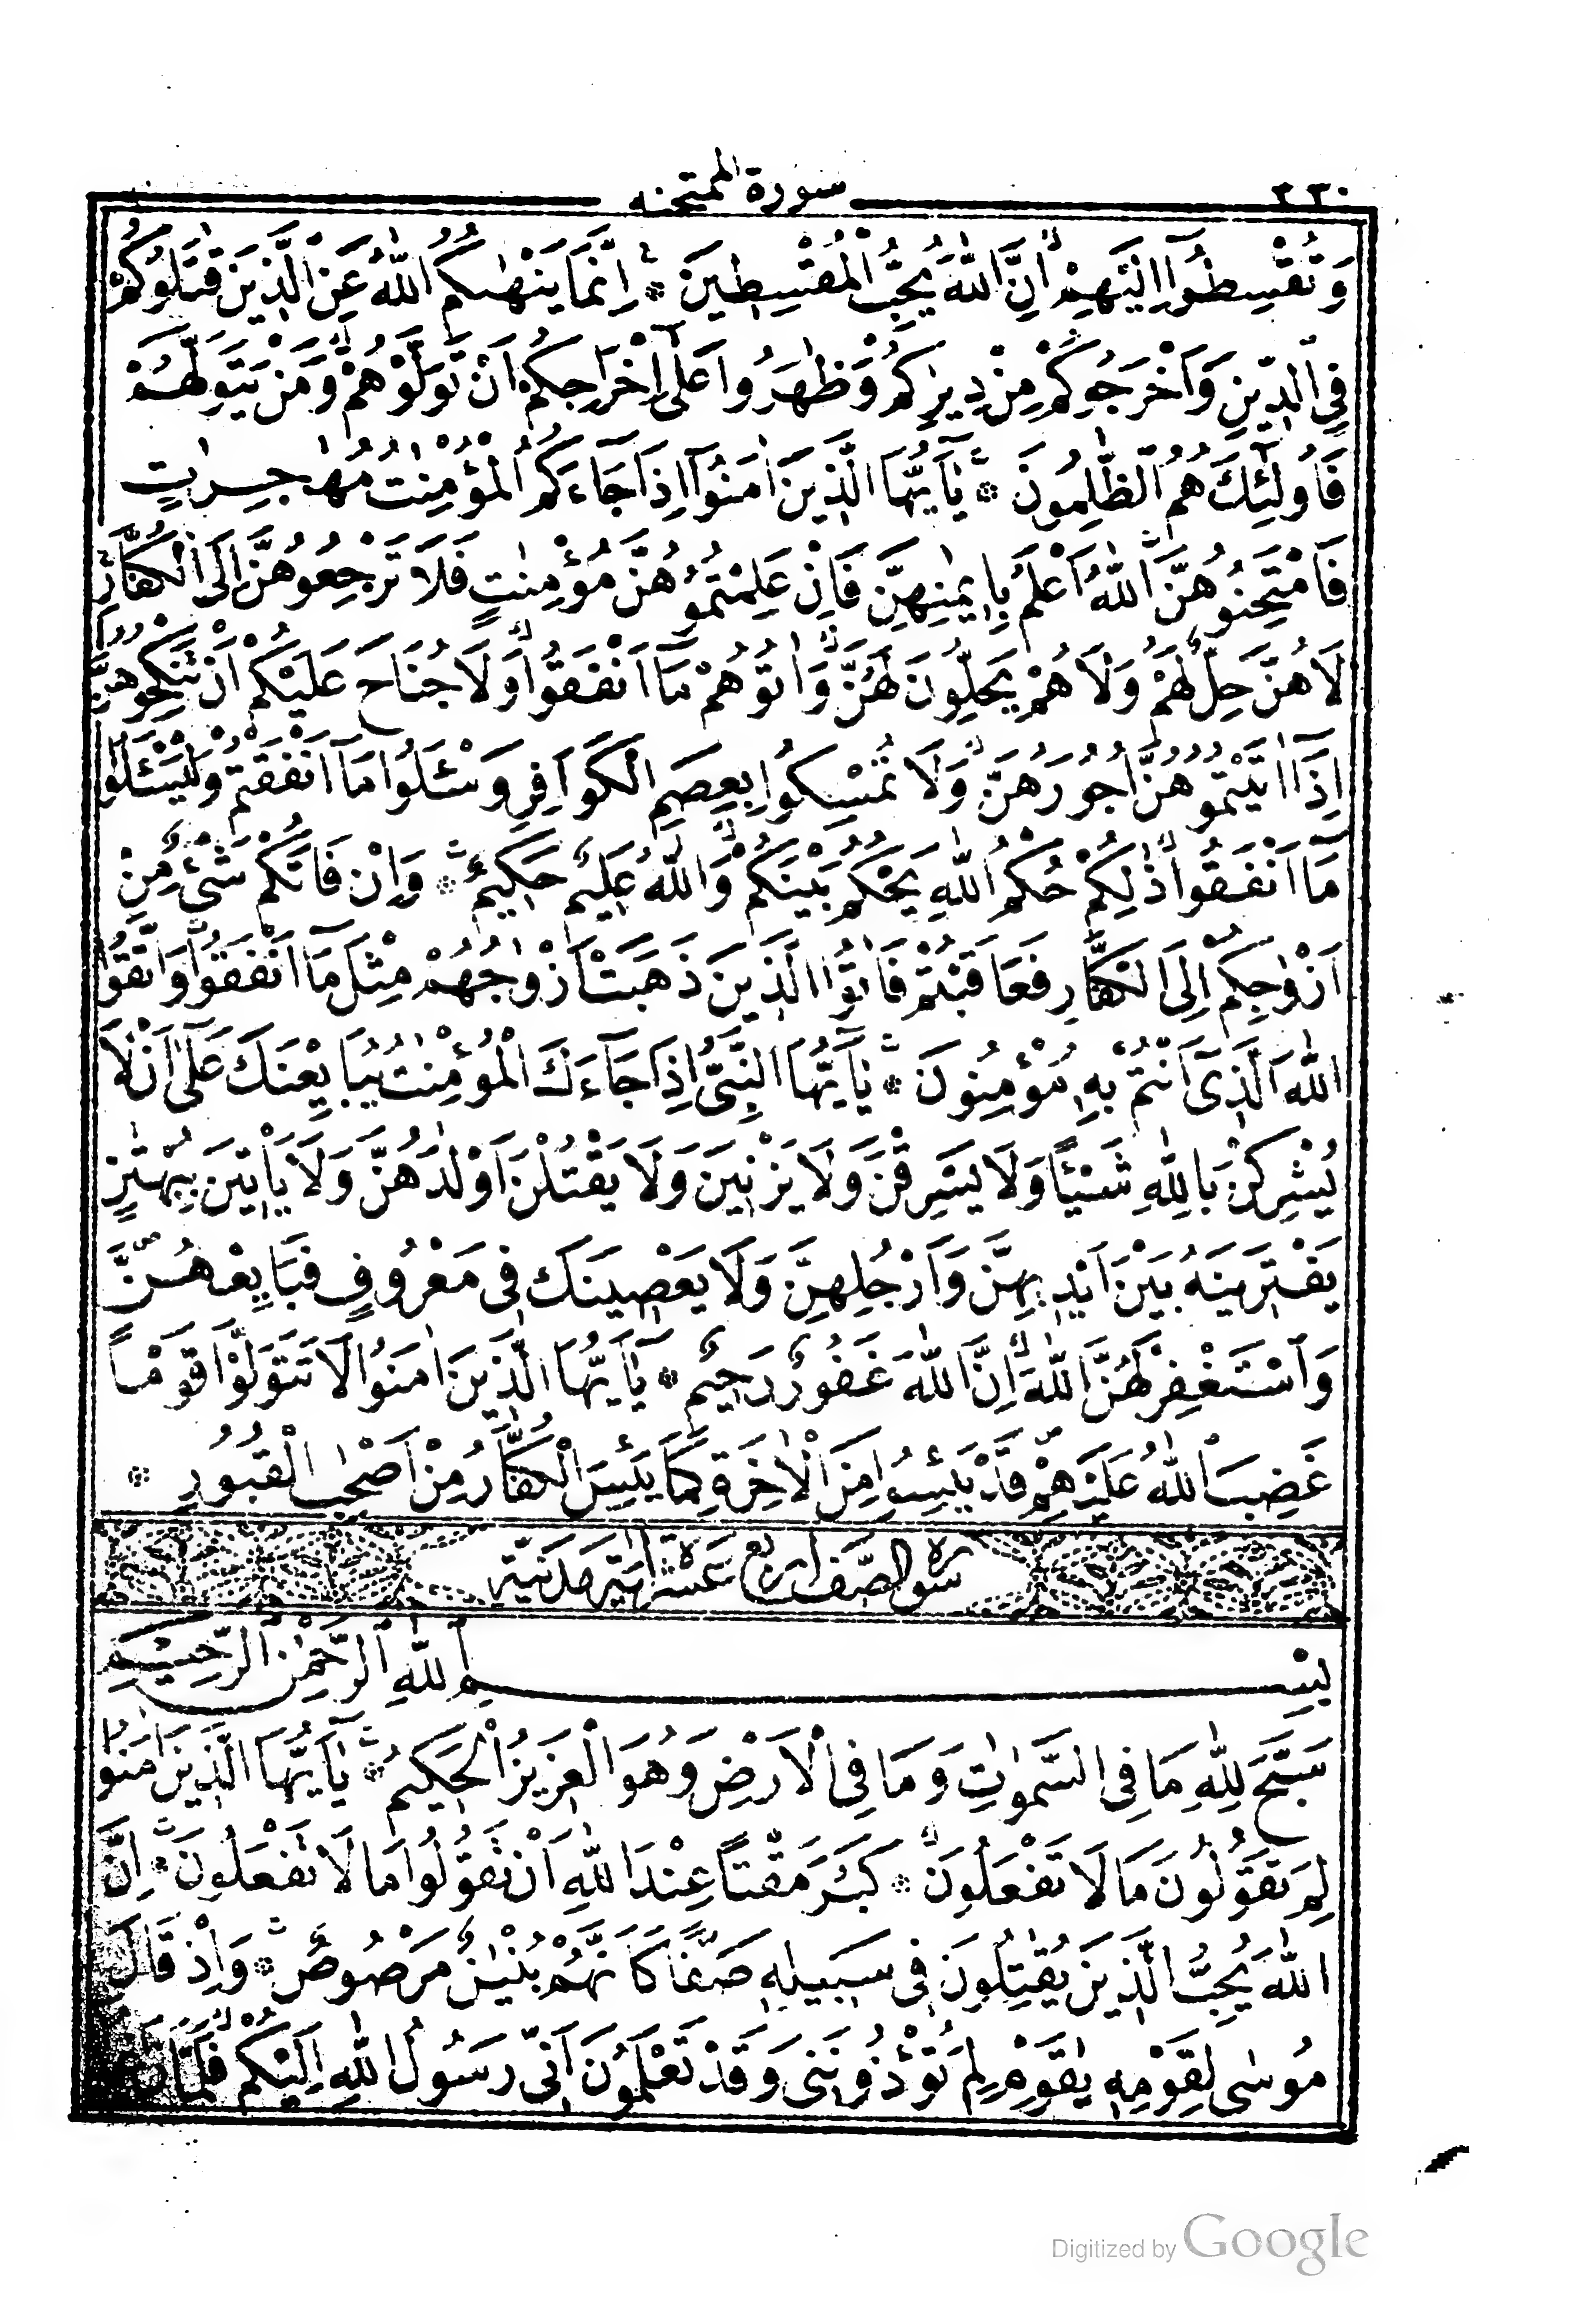 ٣٣٠
سورة الممتحنه
وَتُقْسِطُوٓا اِلَيْهِمْ اِنَّ اللّٰهَ يُحِبُّ الْمُقْسِطِينَ ۞ اِنَّمَا يَنْهٰىكُمُ اللّٰهُ عَنِ الَّذِينَ قٰتَلُوكُمْ
فِى الدِّينِ وَاَخْرَجُوكُمْ مِنْ دِيٰرِكُمْ وَظٰهَرُوا عَلٰٓى اِخْرَاجِكُمْ اَنْ تَوَلَّوْهُمْ وَمَنْ يَتَوَلَّهُمْ
فَاُولٰٓئِكَ هُمُ الظّٰلِمُونَ ۞ يٰٓاَيُّهَا الَّذِينَ اٰمَنُوٓا اِذَا جَآءَكُمُ الْمُؤْمِنٰتُ مُهٰجِرٰتٍ
فَامْتَحِنُوهُنَّ اَللّٰهُ اَعْلَمُ بِاِيمٰنِهِنَّ فَاِنْ عَلِمْتُمُوهُنَّ مُؤْمِنٰتٍ فَلَا تَرْجِعُوهُنَّ اِلَى الْكُفَّارِ
لَا هُنَّ حِلٌّ لَهُمْ وَلَا هُمْ يَحِلُّونَ لَهُنَّ وَاٰتُوهُمْ مَآ اَنْفَقُوا وَلَا جُنَاحَ عَلَيْكُمْ اَنْ تَنْكِحُوهُنَّ
اِذَآ اٰتَيْتُمُوهُنَّ اُجُورَهُنَّ وَلَا تُمْسِكُوا بِعِصَمِ الْكَوَافِرِ وَسْـَٔلُوا مَآ اَنْفَقْتُمْ وَلْيَسْـَٔلُوا
مَآ اَنْفَقُوا ذٰلِكُمْ حُكْمُ اللّٰهِ يَحْكُمُ بَيْنَكُمْ وَاللّٰهُ عَلِيمٌ حَكِيمٌ ۞ وَاِنْ فَاتَكُمْ شَىْءٌ مِنْ
اَزْوٰجِكُمْ اِلَى الْكُفَّارِ فَعَاقَبْتُمْ فَاٰتُوا الَّذِينَ ذَهَبَتْ اَزْوٰجُهُمْ مِثْلَ مَآ اَنْفَقُوا وَاتَّقُوا
اللّٰهَ الَّذِىٓ اَنْتُمْ بِهِ مُؤْمِنُونَ ۞ يٰٓاَيُّهَا النَّبِىُّ اِذَا جَآءَكَ الْمُؤْمِنٰتُ يُبَايِعْنَكَ عَلٰٓى اَنْ لَا
يُشْرِكْنَ بِاللّٰهِ شَيْئًا وَلَا يَسْرِقْنَ وَلَا يَزْنِينَ وَلَا يَقْتُلْنَ اَوْلٰدَهُنَّ وَلَا يَاْتِينَ بِبُهْتٰنٍ
يَفْتَرِينَهُ بَيْنَ اَيْدِيهِنَّ وَاَرْجُلِهِنَّ وَلَا يَعْصِينَكَ فِى مَعْرُوفٍ فَبَايِعْهُنَّ
وَاسْتَغْفِرْ لَهُنَّ اللّٰهَ اِنَّ اللّٰهَ غَفُورٌ رَحِيمٌ ۞ يٰٓاَيُّهَا الَّذِينَ اٰمَنُوا لَا تَتَوَلَّوْا قَوْمًا
غَضِبَ اللّٰهُ عَلَيْهِمْ قَدْ يَئِسُوا مِنَ الْاٰخِرَةِ كَمَا يَئِسَ الْكُفَّارُ مِنْ اَصْحٰبِ الْقُبُورِ ۞
سورة الصّف اربع عشرة اٰية مدنيّة
بِسْمِ اللّٰهِ الرَّحْمٰنِ الرَّحِيمِ
سَبَّحَ لِلّٰهِ مَا فِى السَّمٰوٰتِ وَمَا فِى الْاَرْضِ وَهُوَ الْعَزِيزُ الْحَكِيمُ ۞ يٰٓاَيُّهَا الَّذِينَ اٰمَنُوا
لِمَ تَقُولُونَ مَا لَا تَفْعَلُونَ ۞ كَبُرَ مَقْتًا عِنْدَ اللّٰهِ اَنْ تَقُولُوا مَا لَا تَفْعَلُونَ ۞ اِنَّ
اللّٰهَ يُحِبُّ الَّذِينَ يُقٰتِلُونَ فِى سَبِيلِهِ صَفًّا كَاَنَّهُمْ بُنْيٰنٌ مَرْصُوصٌ ۞ وَاِذْ قَالَ
مُوسٰى لِقَوْمِهِ يٰقَوْمِ لِمَ تُؤْذُونَنِى وَقَدْ تَعْلَمُونَ اَنِّى رَسُولُ اللّٰهِ اِلَيْكُمْ فَلَمَّا
Digitized by Google